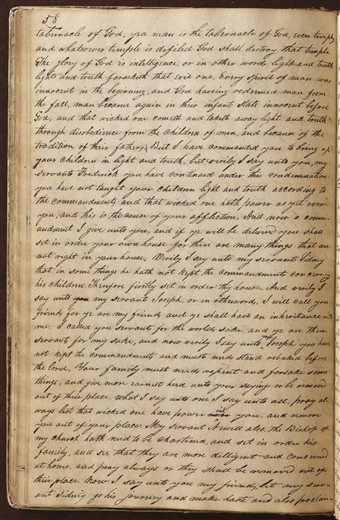 58
tabernacle of God, yea man is the tabernacle of God, even temples
and whatsoever temple is defiled God shall destroy that temple
The glory of God is intelligence or in other words light and truth
light and truth forsaketh that evil one. Every spirit of man was
innocent in the beginning, and God having redeemed man from
the fall, man became again in their infant state innocent before
God, and that wicked one cometh and taketh away light and truth
through disobedience from the children of men, and because of the
tradition of their fathers; But I have commanded you to bring up
your children in light and truth, but verily I say unto you, my
servant Frederick you have continued under this condemnation
you have not taught your children light and truth according to
the commandments and that wicked one hath power as yet over
you, and this is the cause of your affliction. And now a comm
andment I give unto you, and if ye will be delivered you shall
set in order your own house for there are many things that are
not right in your house, Verily I say unto my servant Sidney
that in some things he hath not kept the commandments concerning
his children Therefore firstly set in order thy house. And verily I
say unto my servant Joseph, or in otherwords, I will call you
friends for ye are my friends and ye shall have an inheritance with
me. I called you servants for the worlds sake, and ye are their
servants for my sake, and now verily I say unto, Joseph you have
not kept the commandments and must needs stand rebuked before
the Lord, Your family must needs repent and forsake some
things, and give more earnest heed unto your saying or be removed
out of their place. What I say unto one I say unto all, pray al
ways lest that wicked one have power in you, and remove
you out of your place. My servant Newel also, the Bishop of
my church hath need to be chastened, and set in order his
family, and see that they are more dilligent and concerned
at home, and pray always or they shall be removed out of
their place. Now I say unto you my friends, let my serv
ant Sidney go his journey and make hast and also proclaim